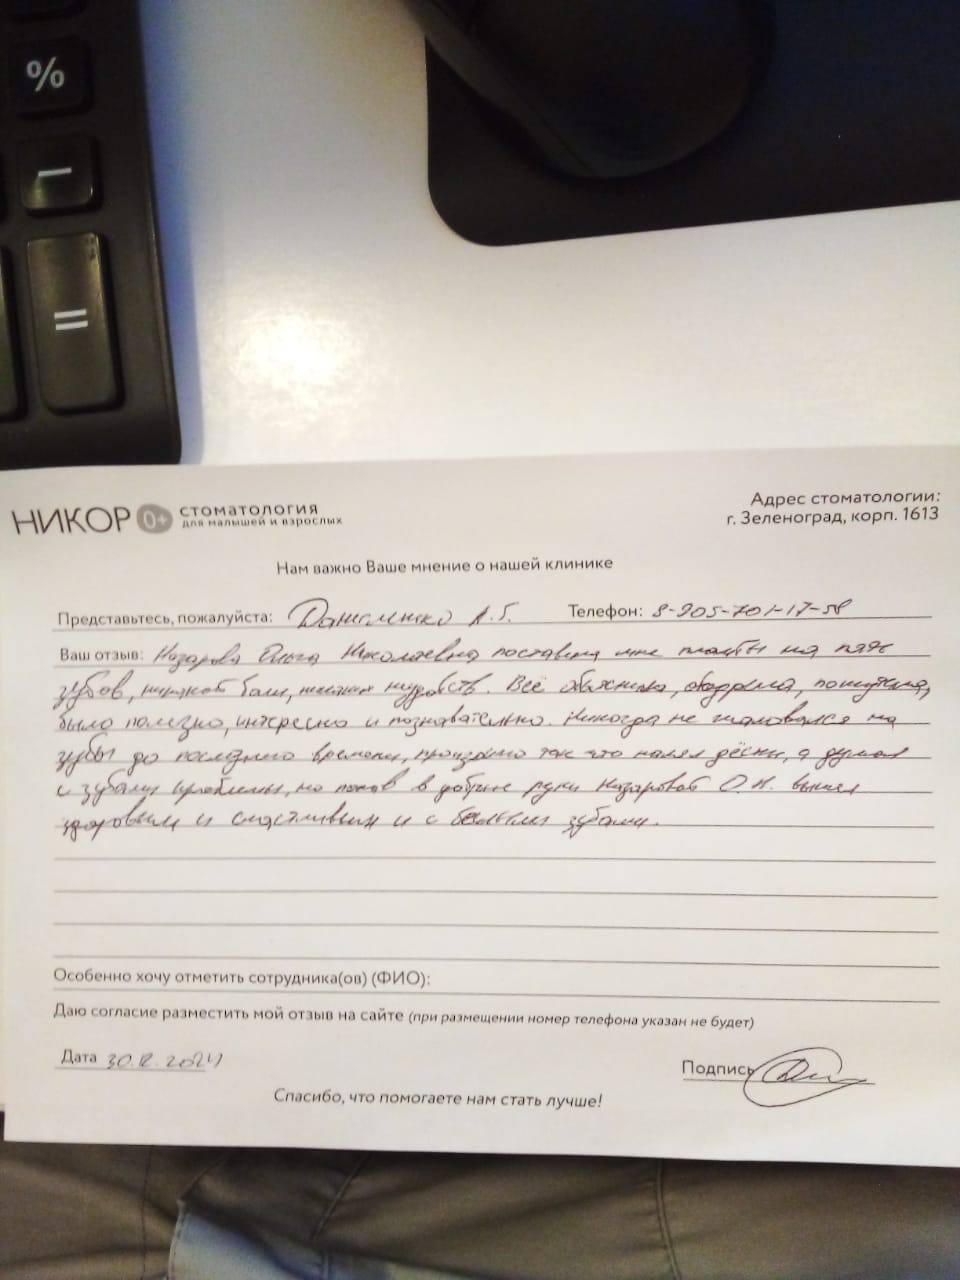 %
−
=
НИКОР 0+ СТОМАТОЛОГИЯ
для малышей и взрослых
Адрес стоматологии:
г. Зеленоград, корп. 1613
Нам важно Ваше мнение о нашей клинике
Представьтесь, пожалуйста: Даниленко А.Г. Телефон: 8-905-701-17-58
Ваш отзыв: Назарова Ольга Николаевна поставила мне пломбы на пять
зубов, никакой боли, никаких неудобств. Всё объяснила, ободрила, пошутила,
было полезно, интересно и познавательно. Никогда не жаловался на
зубы до последнего времени, так что дёсны, а думал
с зубами проблемы, но попав в добрые руки Назаровой О.Н. вышел
здоровым и счастливым и с белыми зубами.
Особенно хочу отметить сотрудника(ов) (ФИО):
Даю согласие разместить мой отзыв на сайте (при размещении номер телефона указан не будет)
Дата 30.12.2024 Подпись
Спасибо, что помогаете нам стать лучше!